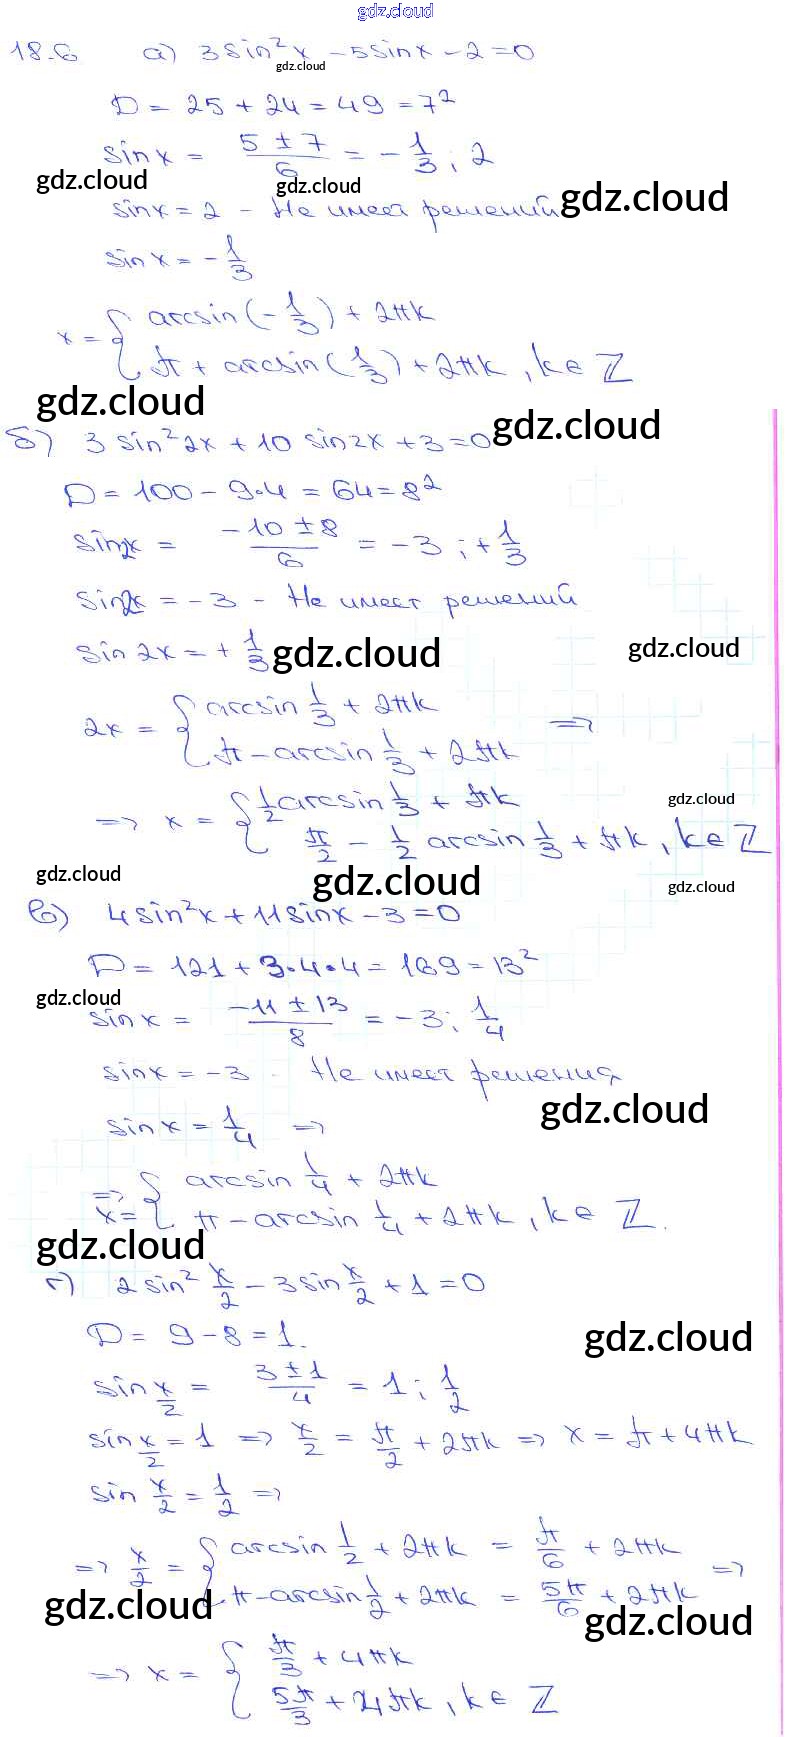 gdz.cloud
18.6 а) 3sin²x - 5sinx - 2 = 0
gdz.cloud
D = 25 + 24 = 49 = 7²
sin x = (5 ± 7)/6 = -1/3 ; 2
gdz.cloud gdz.cloud
sinx = 2 - Не имеет решений gdz.cloud
sin x = -1/3
x = { arcsin(-1/3) + 2πk
π + arcsin(1/3) + 2πk , k ∈ ℤ
gdz.cloud
б) 3 sin²2x + 10 sin2x + 3 = 0 gdz.cloud
D = 100 - 9·4 = 64 = 8²
sin2x = (-10 ± 8)/6 = -3 ; +1/3
sin2x = -3 - Не имеет решений
sin 2x = + 1/3 gdz.cloud gdz.cloud
2x = { arcsin 1/3 + 2πk
π - arcsin 1/3 + 2πk =>
gdz.cloud
=> x = { 1/2 arcsin 1/3 + πk
π/2 - 1/2 arcsin 1/3 + πk , k ∈ ℤ
gdz.cloud gdz.cloud gdz.cloud
в) 4sin²x + 11sinx - 3 = 0
D = 121 + 3·4·4 = 169 = 13²
gdz.cloud
sin x = (-11 ± 13)/8 = -3 ; 1/4
sinx = -3 - Не имеет решения
gdz.cloud
sin x = 1/4 =>
=> x = { arcsin 1/4 + 2πk
π - arcsin 1/4 + 2πk , k ∈ ℤ.
gdz.cloud
г) 2 sin² x/2 - 3 sin x/2 + 1 = 0
D = 9 - 8 = 1.
gdz.cloud
sin x/2 = (3 ± 1)/4 = 1 ; 1/2
sin x/2 = 1 => x/2 = π/2 + 2πk => x = π + 4πk
sin x/2 = 1/2 =>
=> x/2 = { arcsin 1/2 + 2πk = π/6 + 2πk
π - arcsin 1/2 + 2πk = 5π/6 + 2πk =>
gdz.cloud gdz.cloud
=> x = { π/3 + 4πk
5π/3 + 4πk , k ∈ ℤ